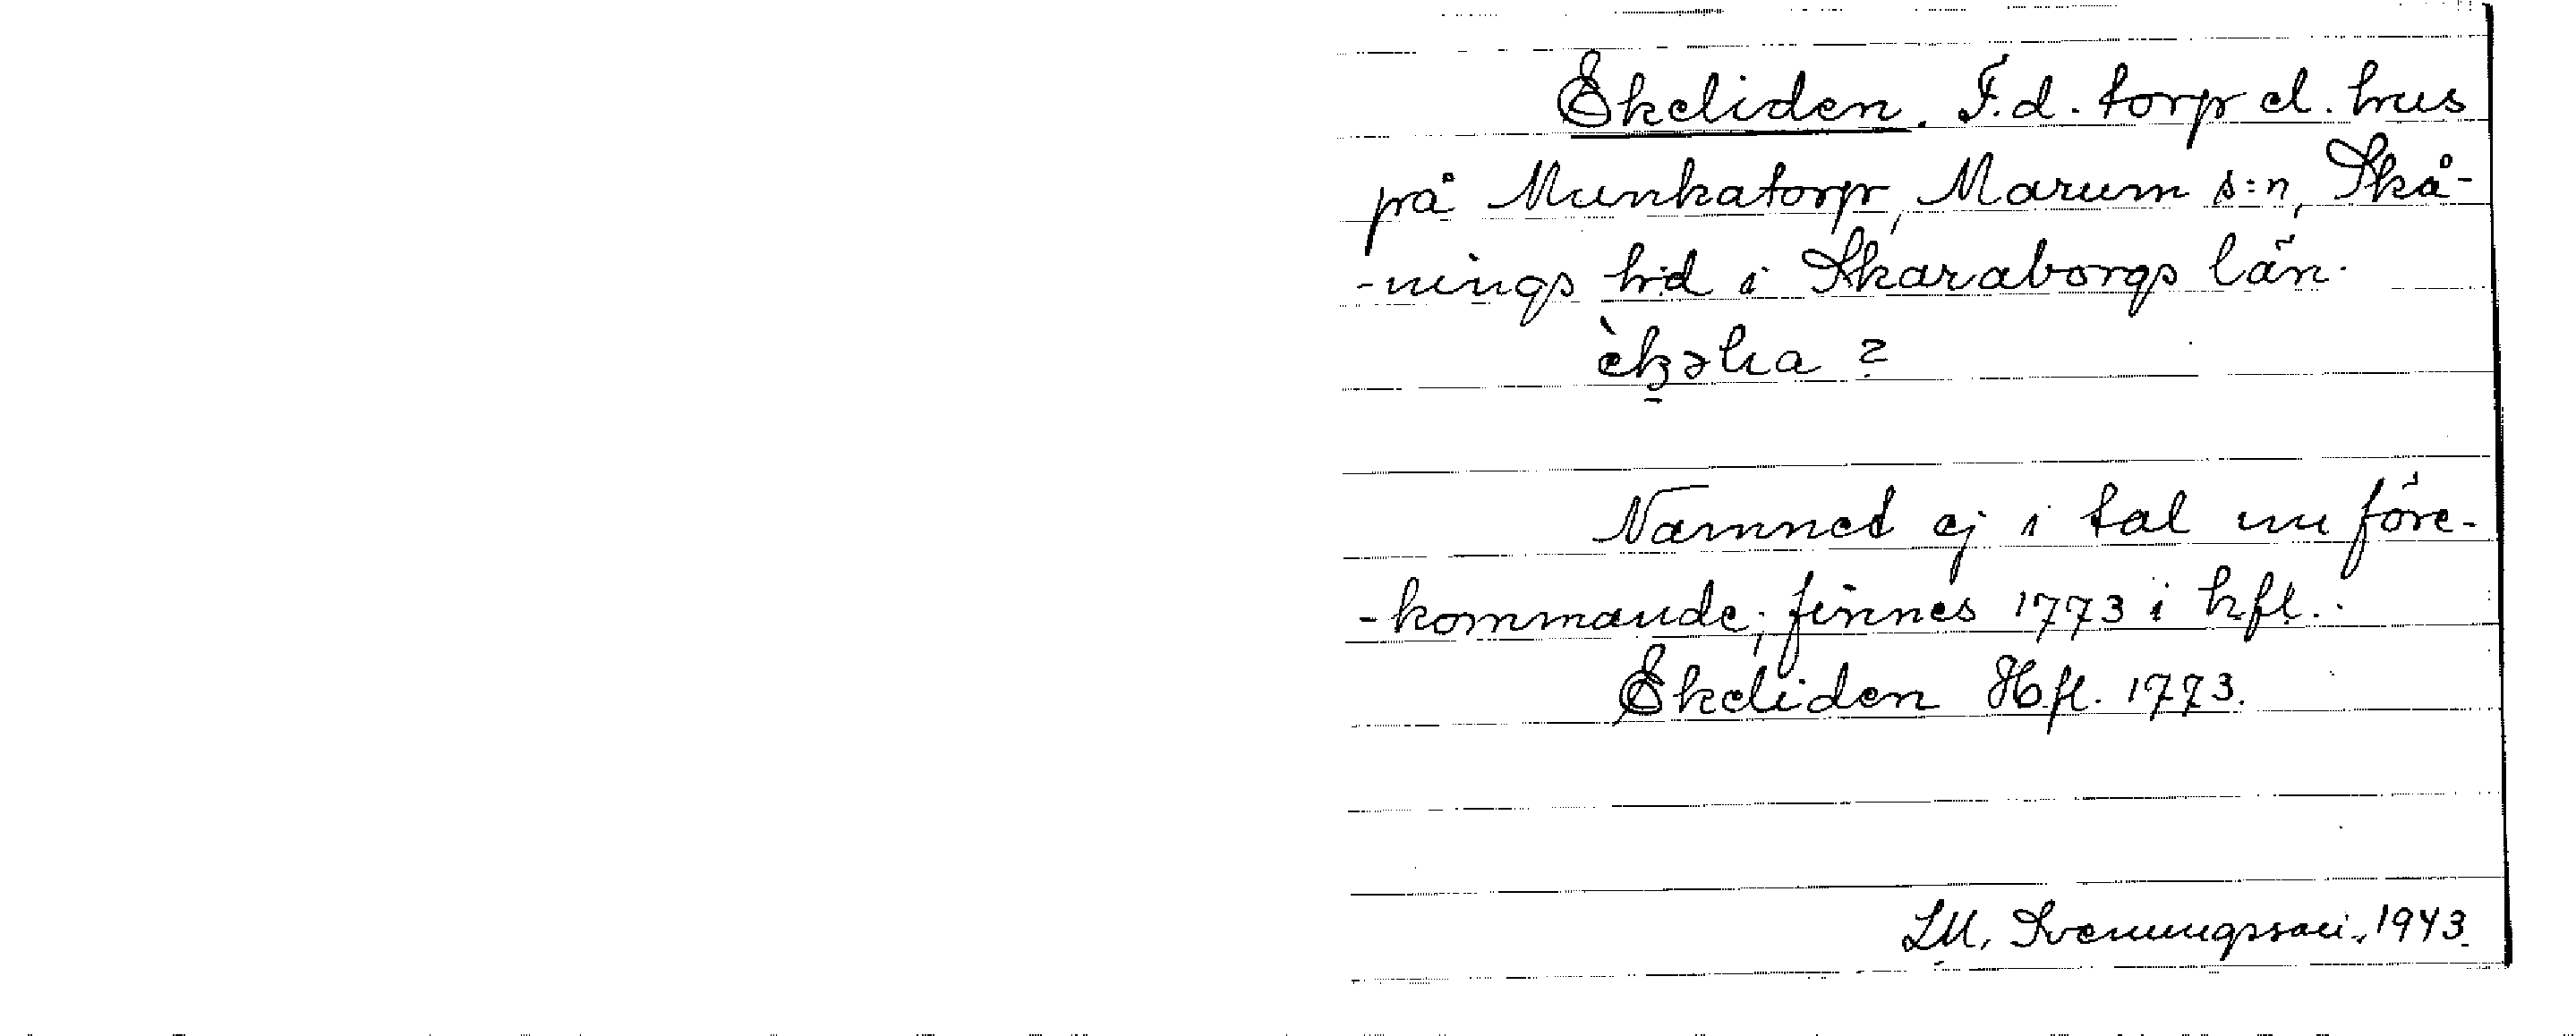 Ekeliden. F.d. torp el. hus
på Munkatorp, Marum s:n, Skå-
-nings hd i Skaraborgs län.
Namnet ej i tal nu före-
-kommande; finnes 1773 i hfl.
Ekeliden Hfl. 1773.
LM. Svenungsson, 1943.